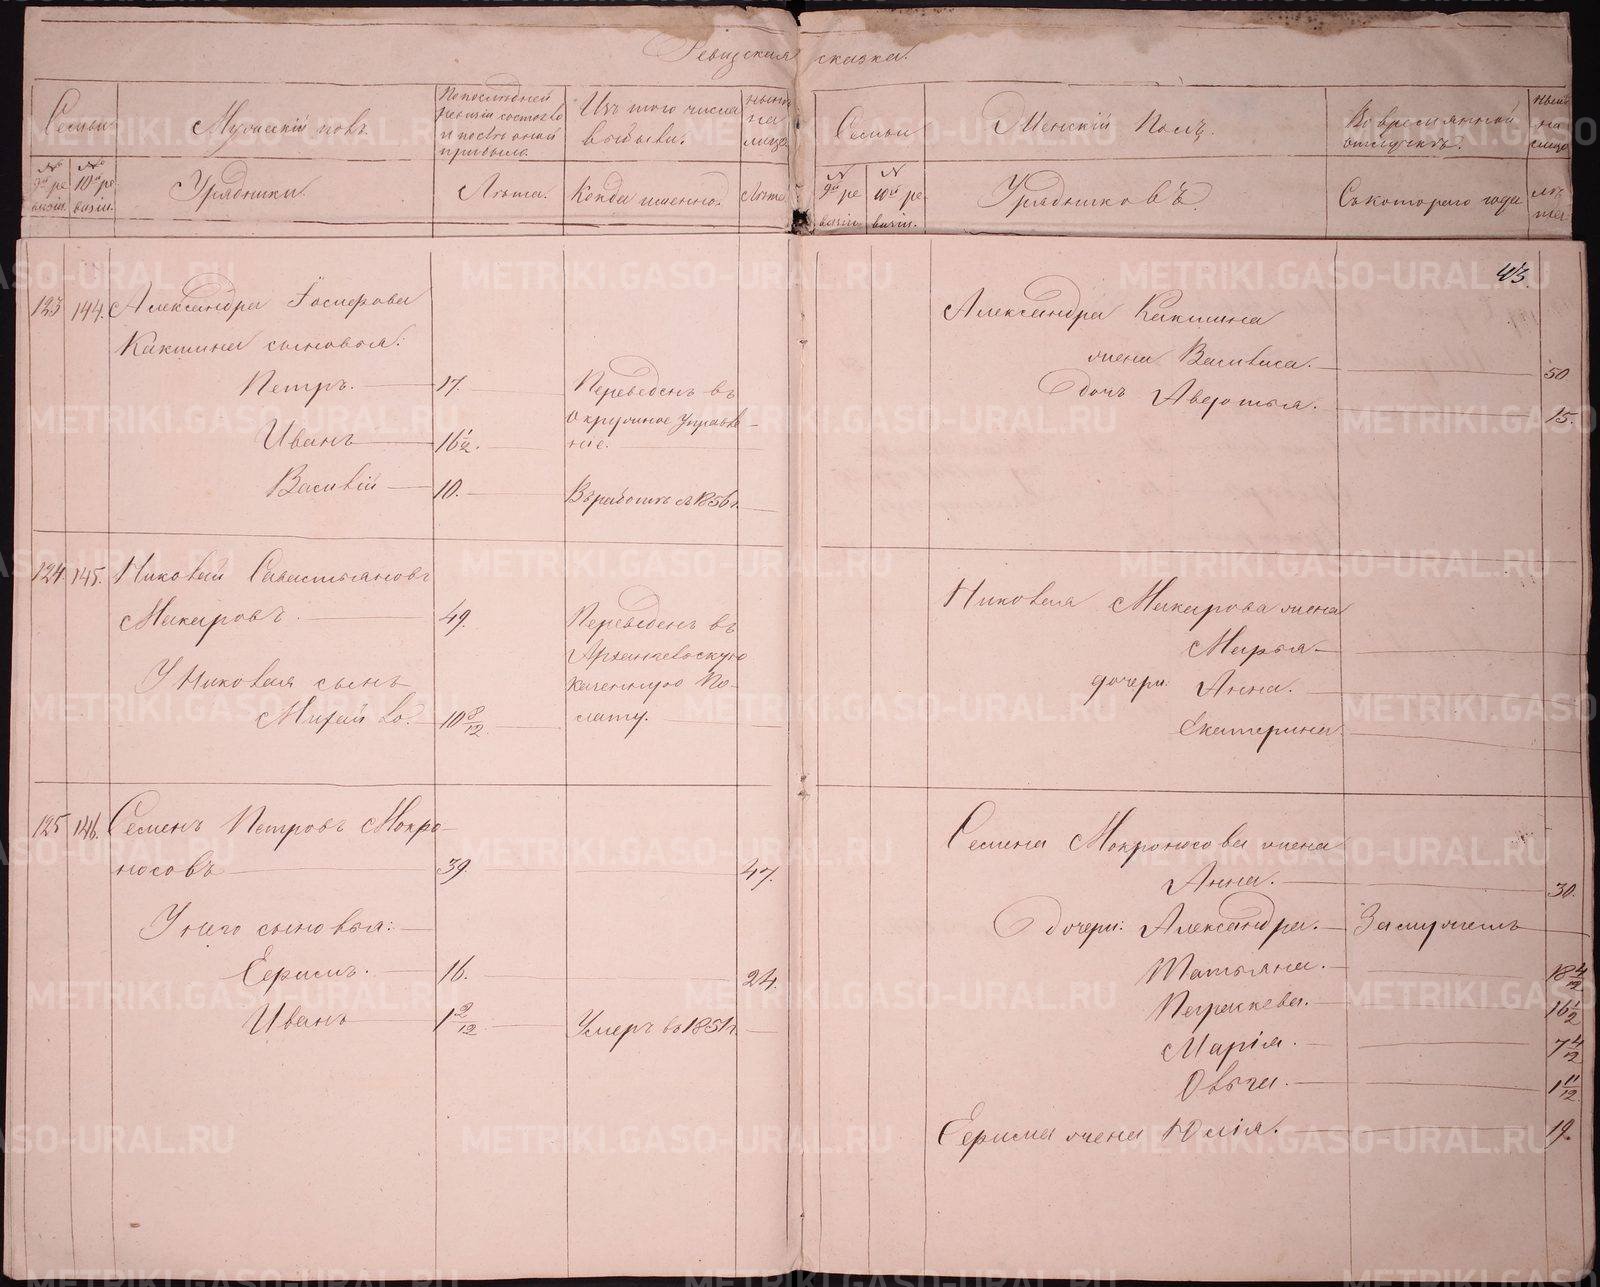 Ревизская сказка.
Семьи
Мужескій полъ.
По последней ревизіи состояло и после оной прибыло.
Изъ того числа выбыли.
ныне на лицо
Семьи
Женскій Полъ.
Во временной отлучкѣ.
ныне на лицо
№ 9й ревизіи.
№ 10й ревизіи.
Урядники.
Лѣта.
Когда именно.
Лѣта
№ 9й ревизіи
№ 10й ревизіи.
Урядниковъ.
Съ котораго года
лѣта
43.
123 144. Александра
Какшина сыновья:
Петръ. 17. Переведенъ въ
Окружное Управле-
Иванъ 16 1/2. ніе.
Василій 10. В работѣ с 1856 г.
Александра Какшина
жена Василиса. 50
дочь Авдотья. 15.
124. 145. Николай Савастьяновъ
Макаровъ. 49. Переведенъ въ
Архангельскую
У Николая сынъ Казенную По-
Михайло. 10 8/12. лату.
Николая Макарова жена
Марья
дочери: Анна.
Екатерина
125 146. Семенъ Петровъ Мокро-
носовъ 39. 47.
У него сыновья:
Ефимъ. 16. 24.
Иванъ 1 2/12 Умеръ въ 1851 г.
Семена Мокроносова жена
Анна. 30.
Дочери: Александра. Замужемъ
Татьяна. 18 4/12
Параскева. 16 1/2
Марія. 7 4/12
Ольга. 1 11/12
Ефима жена Юлія. 19.
METRIKI.GASO-URAL.RU